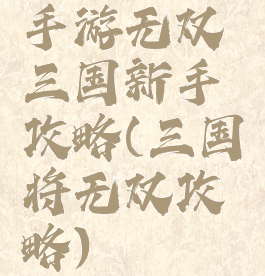 手游无双
三国新手
攻略(三国
将无双攻
略)